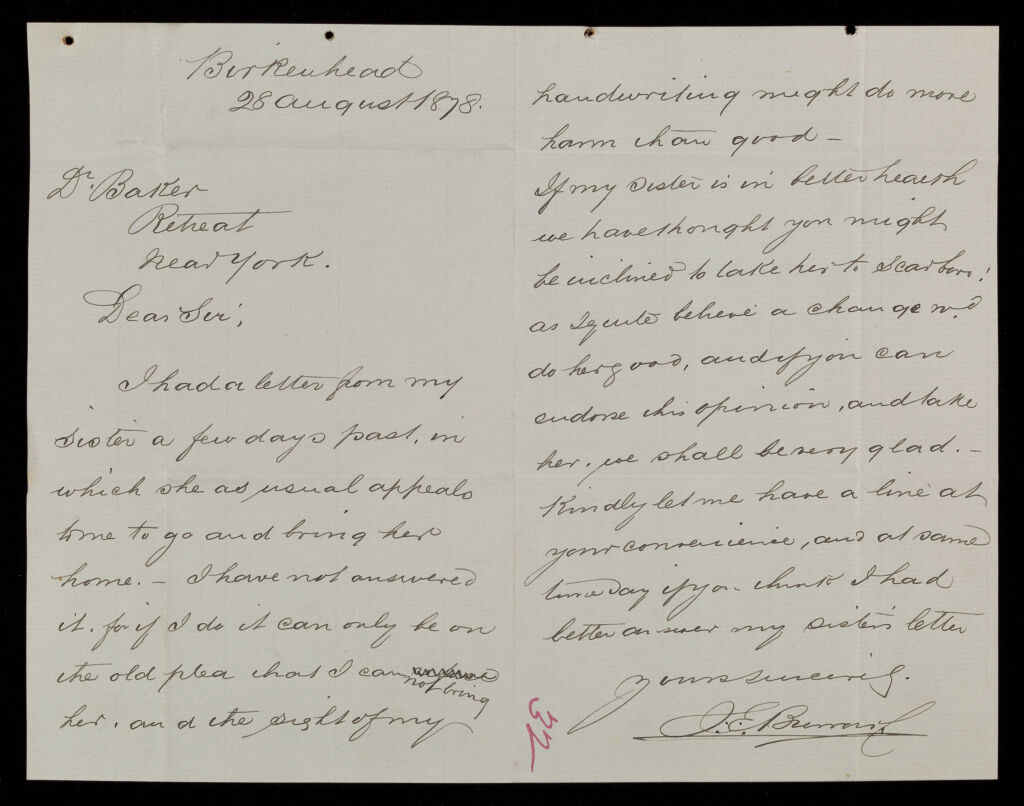 Birkenhead
28 August 1878.
Dr. Baker
Retreat
Near York.
Dear Sir,
I had a letter from my
sister a few days past, in
which she as usual appeals
to me to go and bring her
home. – I have not answered
it. for if I do it can only be on
the old plea that I can
not bring
her. and the sight of my
handwriting might do more
harm than good –
If my sister is in better health
we have thought you might
be inclined to take her to Scarboro'
as I quite believe a change wd
do her good, and if you can
endorse this opinion, and take
her. we shall be very glad. –
Kindly let me have a line at
your convenience, and at same
time say if you think I had
better answer my sister's letter
yours sincerely.
J. E.
32